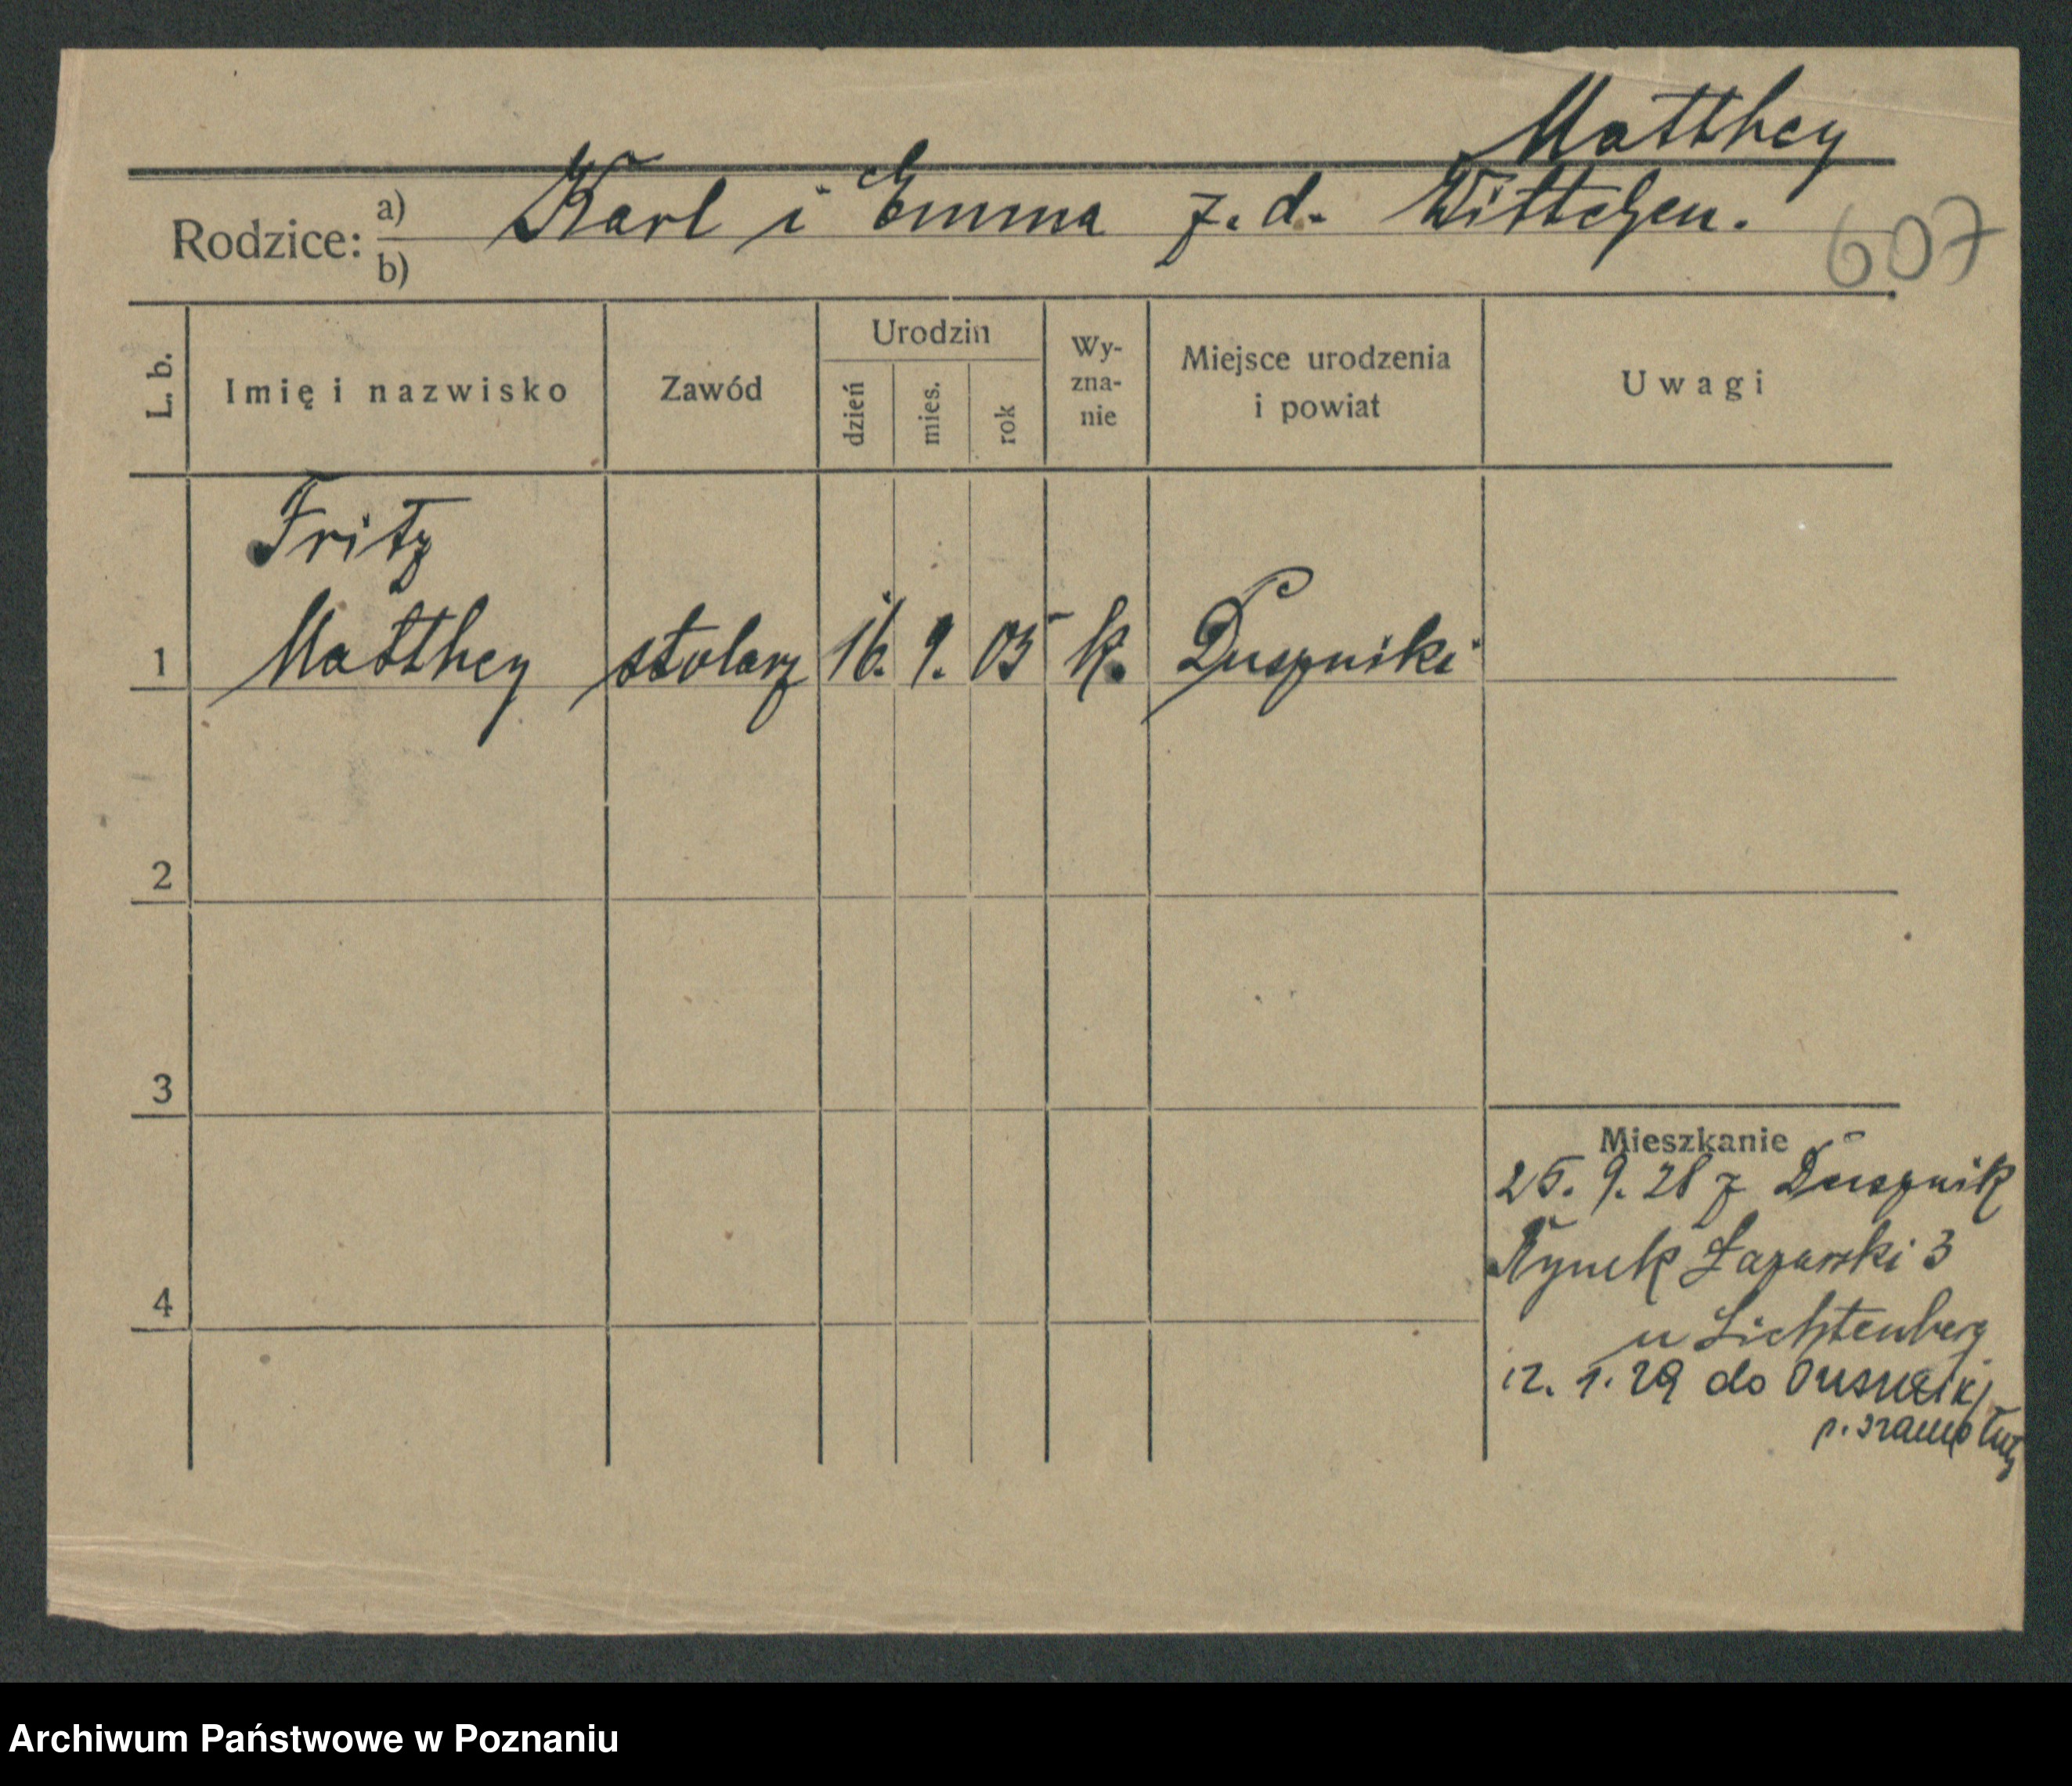 Matthey
Rodzice: a) Karl i Emma z. d. Wittchen.
b)
607
L. b. Imię i nazwisko Zawód Urodzin dzień mies. rok Wy-zna-nie Miejsce urodzenia i powiat Uwagi
Fritz
1 Matthey stolarz 16. 9. 05 k. Duszniki
2
3
Mieszkanie
25. 9. 28 z Dusznik
Rynek Łazarski 3
4
u Lichtenberg
12. 1. 29 do Duszniki
p. Szamotuły
Archiwum Państwowe w Poznaniu